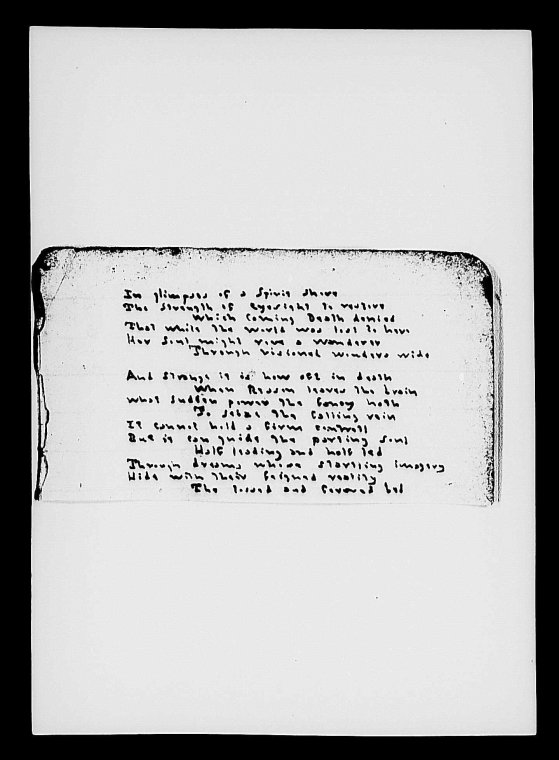 In glimpses of a Spirit shore
The strength of Eyesight to restore
Which coming Death denied
That while the world was lost to her
Her Soul might rove a wanderer
Through visioned wonders wide

And strange it is how oft in death
When Reason leaves the brain
What sudden power the fancy hath
To seize the falling rein
It cannot hold a firm controll
But it can guide the parting Soul
Half leading and half led
Through dreams whose startling imagery
Hide with their feigned reality
The tossed and fevered bed